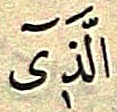 الَّذٖىٓ